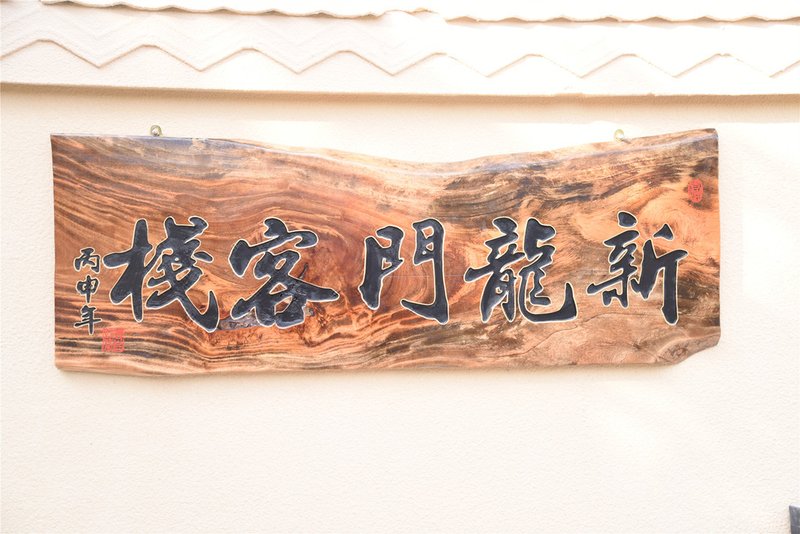 新龍門客棧
丙申年